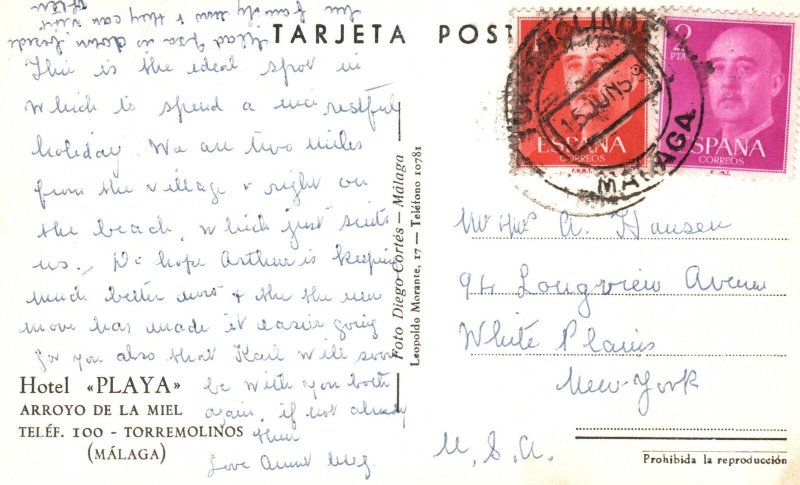 TARJETA POST
This is the ideal spot in
which to spend a nice restful
holiday. We are two miles
from the village & right on
the beach, which just suits
us. Do hope Arthur is keeping
much better now & the the new
move has made it easier going
for you also that Karl will soon
be with you both
again, if not already
there
Love Aunt Meg
Glad Ysa is down beside
the family now & they can visit
often
Hotel «PLAYA»
ARROYO DE LA MIEL
TELÉF. 100 - TORREMOLINOS
(MÁLAGA)
Foto Diego Cortés — Málaga
Leopoldo Morante, 17 — Teléfono 10781
1
ESPAÑA
CORREOS
F.N.M.T.
2
PTA
ESPAÑA
CORREOS
TORREMOLINOS
15 JUN 59
MALAGA
Mr & Mrs A. Hansen
94 Longview Avenue
White Plains
New-York
U.S.A.
Prohibida la reproducción